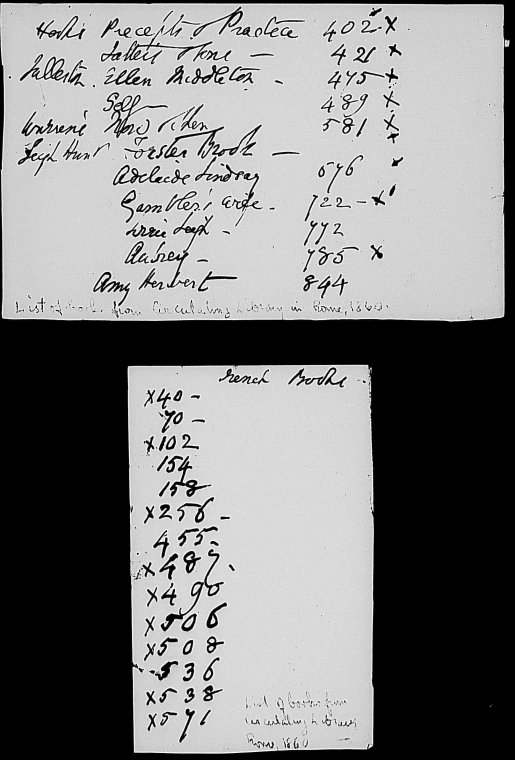 Hook's Precepts & Practice 402 - X
421 x
Fullerton. Ellen Middleton - 475 x
Self - 489 x
Warren's Now & then 581 x
Leigh Hunt Forster Brook - x
Adelaide Lindsay 676
Gambler's wife - 722 - x
Leigh - 772
Aubrey - 785 x
Amy Herbert 844
List of books from Circulating Library in Rome, 1860.
French Books
x 40 -
70 -
x 102
154
158
x 256 -
455 -
x 487.
x 490
x 506
x 508
536
x 538
x 571
List of books from
Circulating Library
Rome, 1860